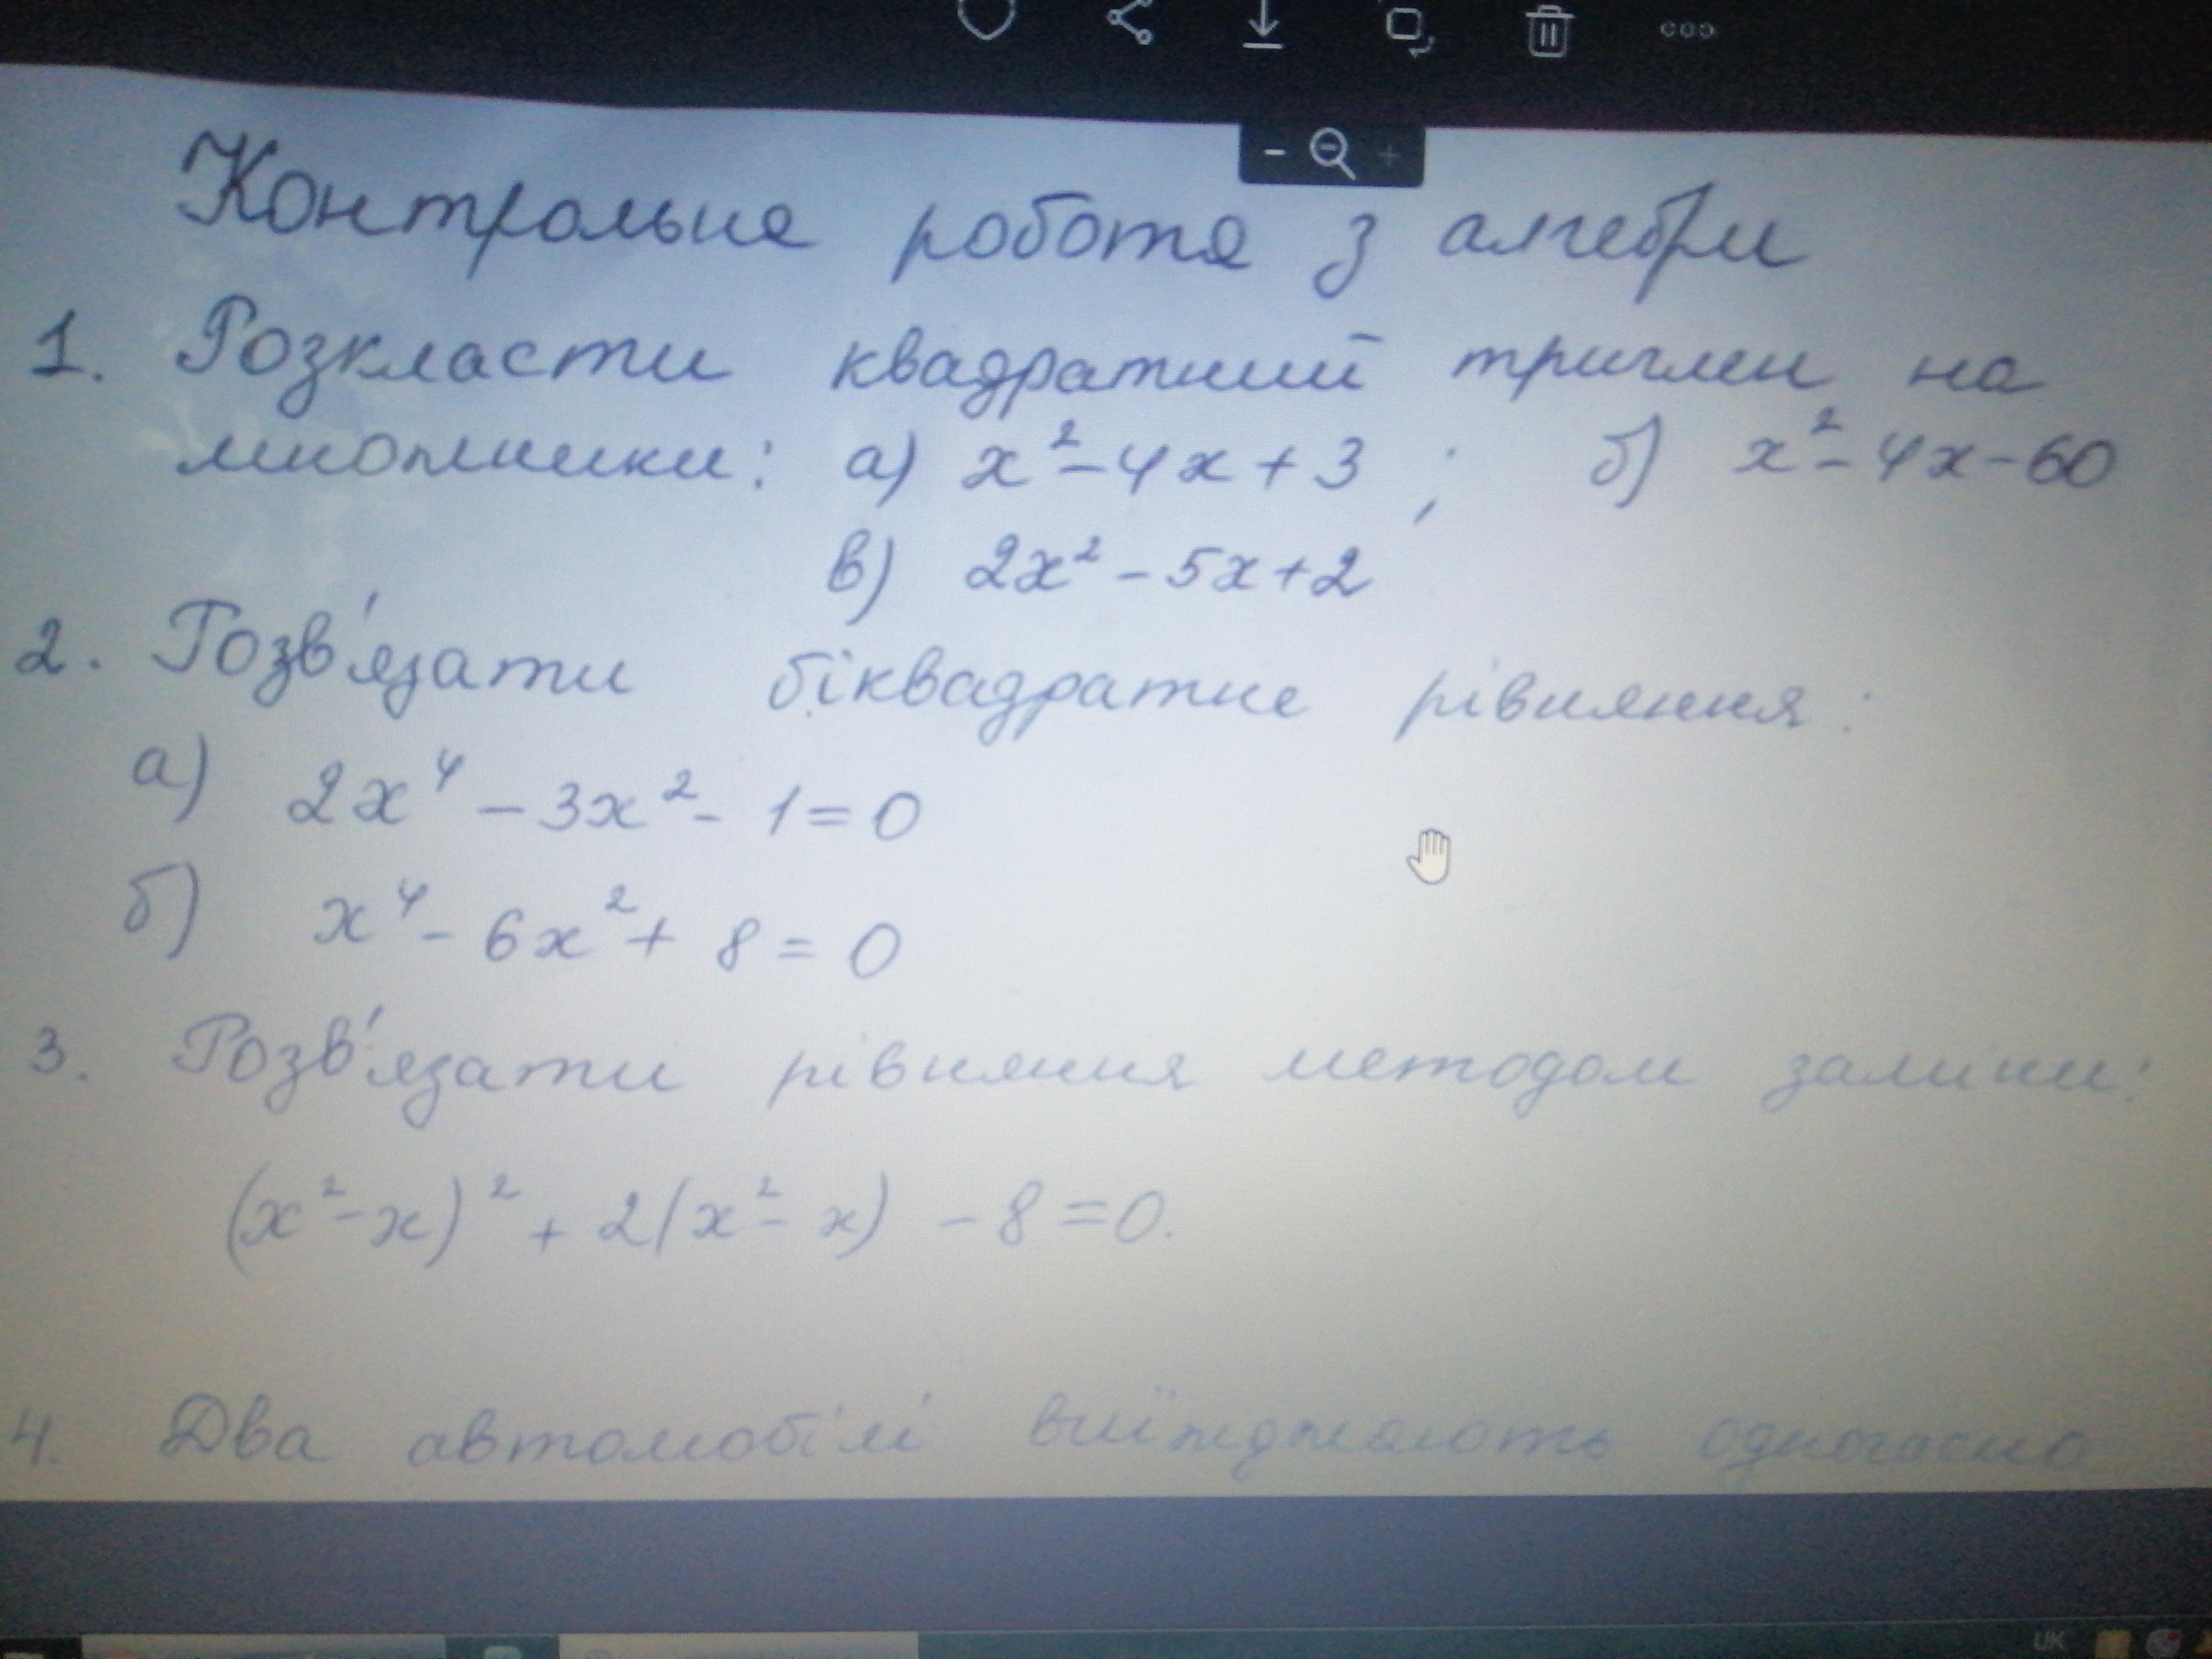 Контрольна робота з алгебри
1. Розкласти квадратний тричлен на
множники: а) x² - 4x + 3 ; б) x² - 4x - 60
в) 2x² - 5x + 2
2. Розв'язати біквадратне рівняння:
а) 2x⁴ - 3x² - 1 = 0
б) x⁴ - 6x² + 8 = 0
3. Розв'язати рівняння методом заміни:
(x² - x)² + 2(x² - x) - 8 = 0.
4. Два автомобілі виїжджають одночасно
UK